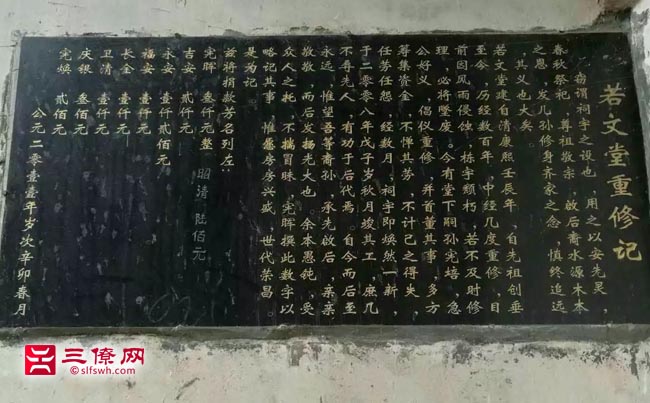 若文堂重修记
窃谓祠宇之设也，用之以安先灵，
春秋祭祀，尊祖敬宗，啟后裔水源木本
之恩，发儿孙修身齐家之念，慎终追远
，其义也大矣。
若文堂建自清康熙壬辰年，自先祖创垂
至今，历经数百年，中经几度重修，目
前因风雨侵蚀，栋宇颓朽，若不及时修
理，必将坠废。今有堂下嗣孙宪培，急
公好义，倡仪重修，并首董其事，多方
筹集资金，不惮其劳，不计己之得失，
任劳任怨，经数月，祠宇即焕然一新，
于二零零八年戊子岁秋月竣其工，庶几
不辱先人，有功于后代焉。自今而后至
永远，惟望吾等裔孙，承先啟后，亲亲
敬敬，而后发扬先大也。余本愚钝，受
众人之托，不揣冒昧，宪晖撰此数字以
略记其事，惟愿房房兴盛，世代荣昌。
是为记
兹将捐款芳名列左：
宪晖 叁仟元整 昭清 陆佰元
吉安 贰仟元
永安 壹仟贰佰元
福安 壹仟元
长全 壹仟元
卫清 壹仟元
庆银 贰佰元
宪焕 贰佰元
公元二零壹壹年岁次辛卯春月
三僚网
slfswh.com